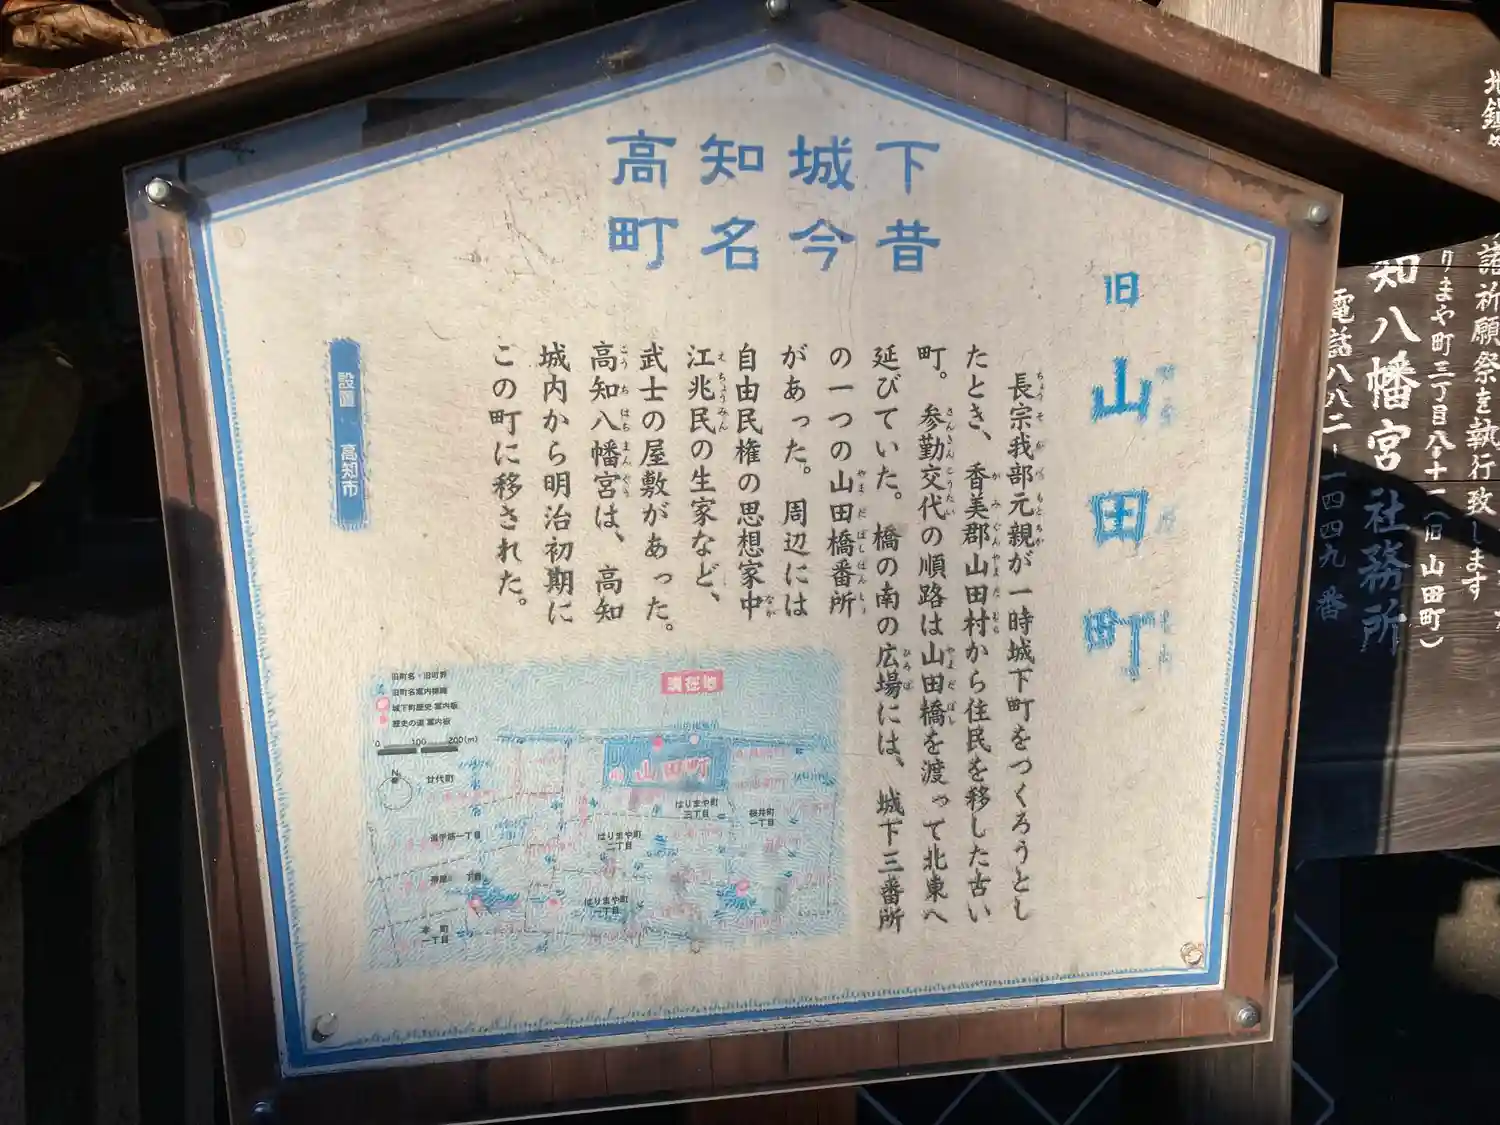 高知城下
町名今昔
旧山田町
長宗我部元親が一時城下町をつくろうとし
たとき、香美郡山田村から住民を移した古い
町。参勤交代の順路は山田橋を渡って北東へ
延びていた。橋の南の広場には、城下三番所
の一つの山田橋番所
があった。周辺には
自由民権の思想家中
江兆民の生家など、
武士の屋敷があった。
高知八幡宮は、高知
城内から明治初期に
この町に移された。
設置 高知市
現在地
旧町名・旧町界
旧町名案内標識
城下町歴史案内板
歴史の道案内板
0 100 200(m)
N
山田町
廿代町
はりまや町
三丁目
桜井町
一丁目
追手筋一丁目
はりまや町
二丁目
はりまや町
一丁目
本町
一丁目
地鎮
諸祈願祭を執行致します
りまや町三丁目八ー十一(旧山田町)
知八幡宮 社務所
電話八八二ー一四四九番